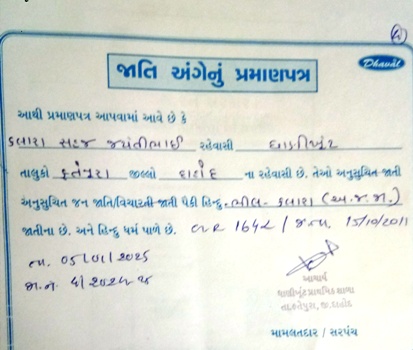 Dhaval
જાતિ અંગેનું પ્રમાણપત્ર
આથી પ્રમાણપત્ર આપવામાં આવે છે કે
કલારા સુરજ જયંતીભાઈ રહેવાસી
તાલુકો ફતેપુરા જીલ્લો દાહોદ ના રહેવાસી છે. તેઓ અનુસુચિત જાતી
અનુસુચિત જન જાતિ/વિચારતી-જાતી પૈકી હિન્દુ-ભીલ- કલારા (અ.જ.જા.)
જાતીના છે. અને હિન્દુ ધર્મ પાળે છે. / જ.તા. 15/10/2011
તા. 05/01/2025
આચાર્ય
પ્રાથમિક શાળા
તા.ફતેપુરા, જી.દાહોદ
મામલતદાર / સરપંચ